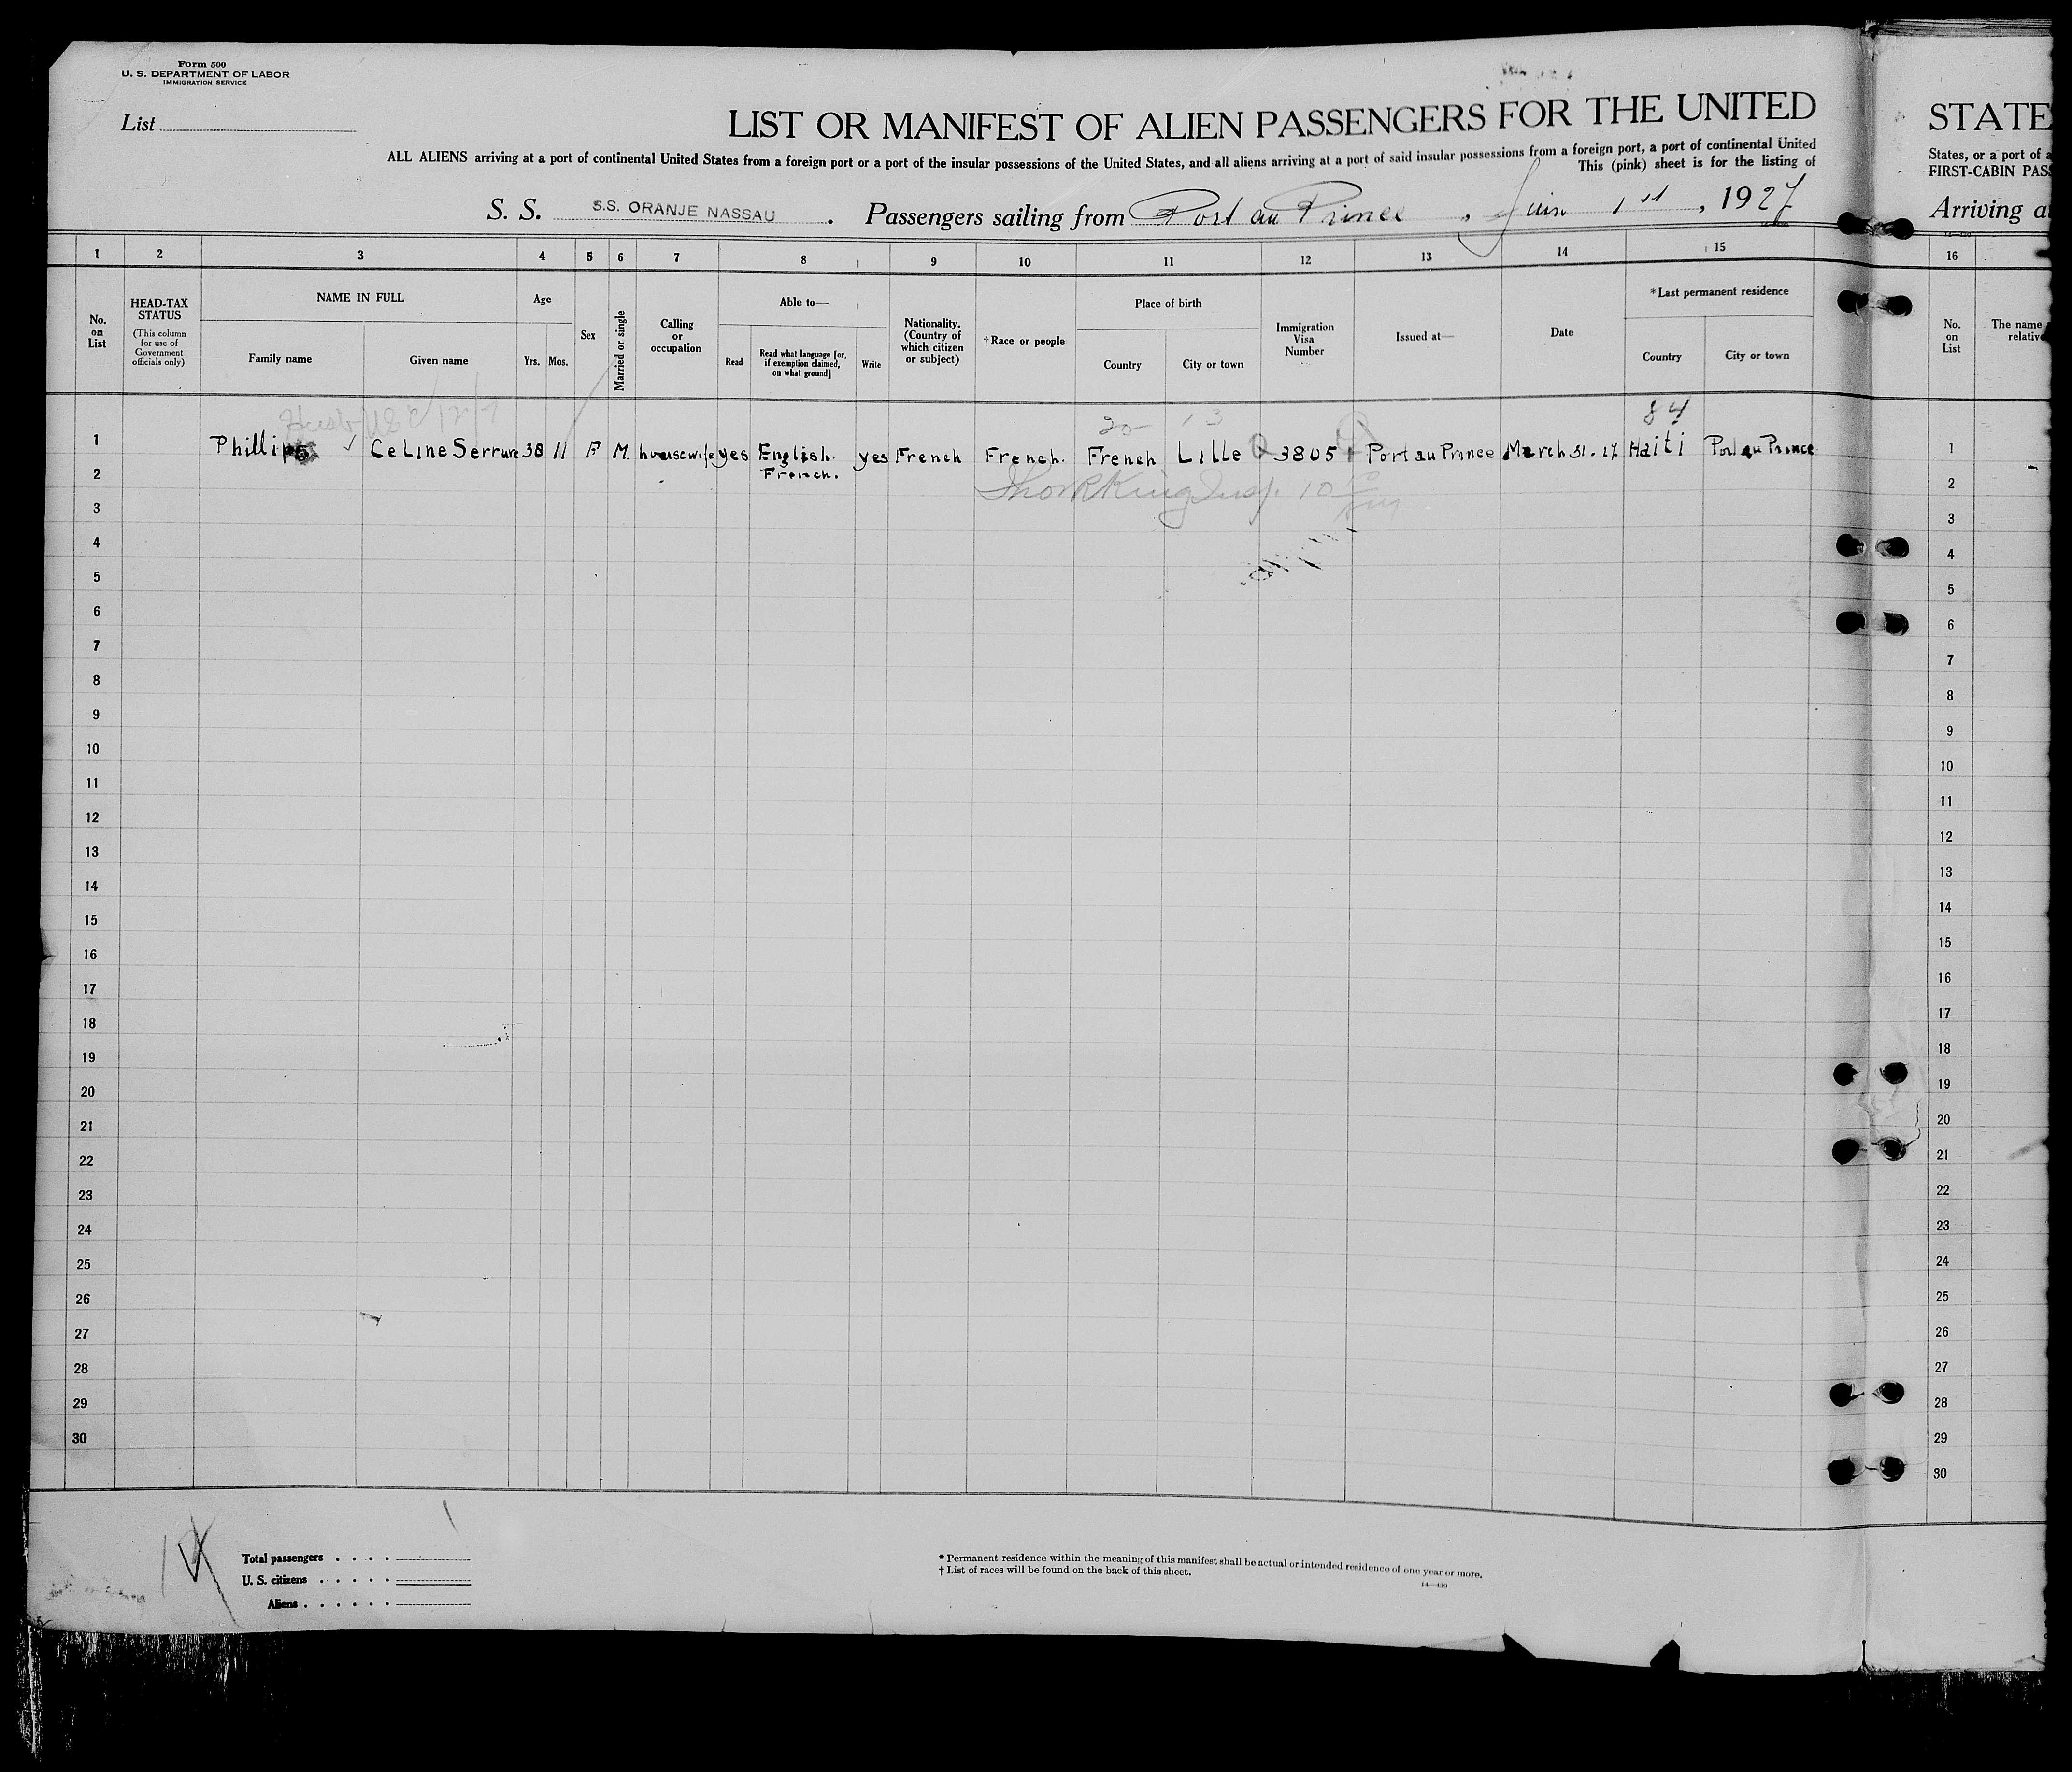 Form 500
U. S. DEPARTMENT OF LABOR
IMMIGRATION SERVICE
List
LIST OR MANIFEST OF ALIEN PASSENGERS FOR THE UNITED
STATE
ALL ALIENS arriving at a port of continental United States from a foreign port or a port of the insular possessions of the United States, and all aliens arriving at a port of said insular possessions from a foreign port, a port of continental United
States, or a port of a
This (pink) sheet is for the listing of
FIRST-CABIN PASS
S. S. S.S. ORANJE NASSAU . Passengers sailing from Port au Prince , Juin 1st , 1927
Arriving a
1 2 3 4 5 6 7 8 9 10 11 12 13 14 15 16
No. on List
HEAD-TAX STATUS
(This column for use of Government officials only)
NAME IN FULL
Family name Given name
Age
Yrs. Mos.
Sex
Married or single
Calling or occupation
Able to—
Read
Read what language [or, if exemption claimed, on what ground]
Write
Nationality. (Country of which citizen or subject)
†Race or people
Place of birth
Country City or town
Immigration Visa Number
Issued at—
Date
*Last permanent residence
Country City or town
No. on List
The name
relative
20 13 84
1 Phillips Celine Serrure 38 11 F M housewife yes English. yes French French. French Lille 3805 Port au Prince March 31. 27 Haiti Port au Prince 1
2 French. 2
3 3
4 4
5 5
6 6
7 7
8 8
9 9
10 10
11 11
12 12
13 13
14 14
15 15
16 16
17 17
18 18
19 19
20 20
21 21
22 22
23 23
24 24
25 25
26 26
27 27
28 28
29 29
30 30
Total passengers . . . .
U. S. citizens . . . . .
Aliens . . . . . .
* Permanent residence within the meaning of this manifest shall be actual or intended residence of one year or more.
† List of races will be found on the back of this sheet.
14—430